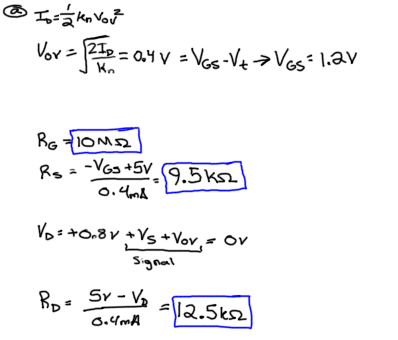 (a) I_D = 1/2 k_n V_ov²
V_ov = √(2I_D/k_n) = 0.4 V = V_GS - V_t → V_GS = 1.2V
R_G = 10MΩ
R_S = (-V_GS + 5V)/0.4mA = 9.5kΩ
V_D = +0.8V + V_S + V_ov = 0V
Signal
R_D = (5V - V_D)/0.4mA = 12.5kΩ